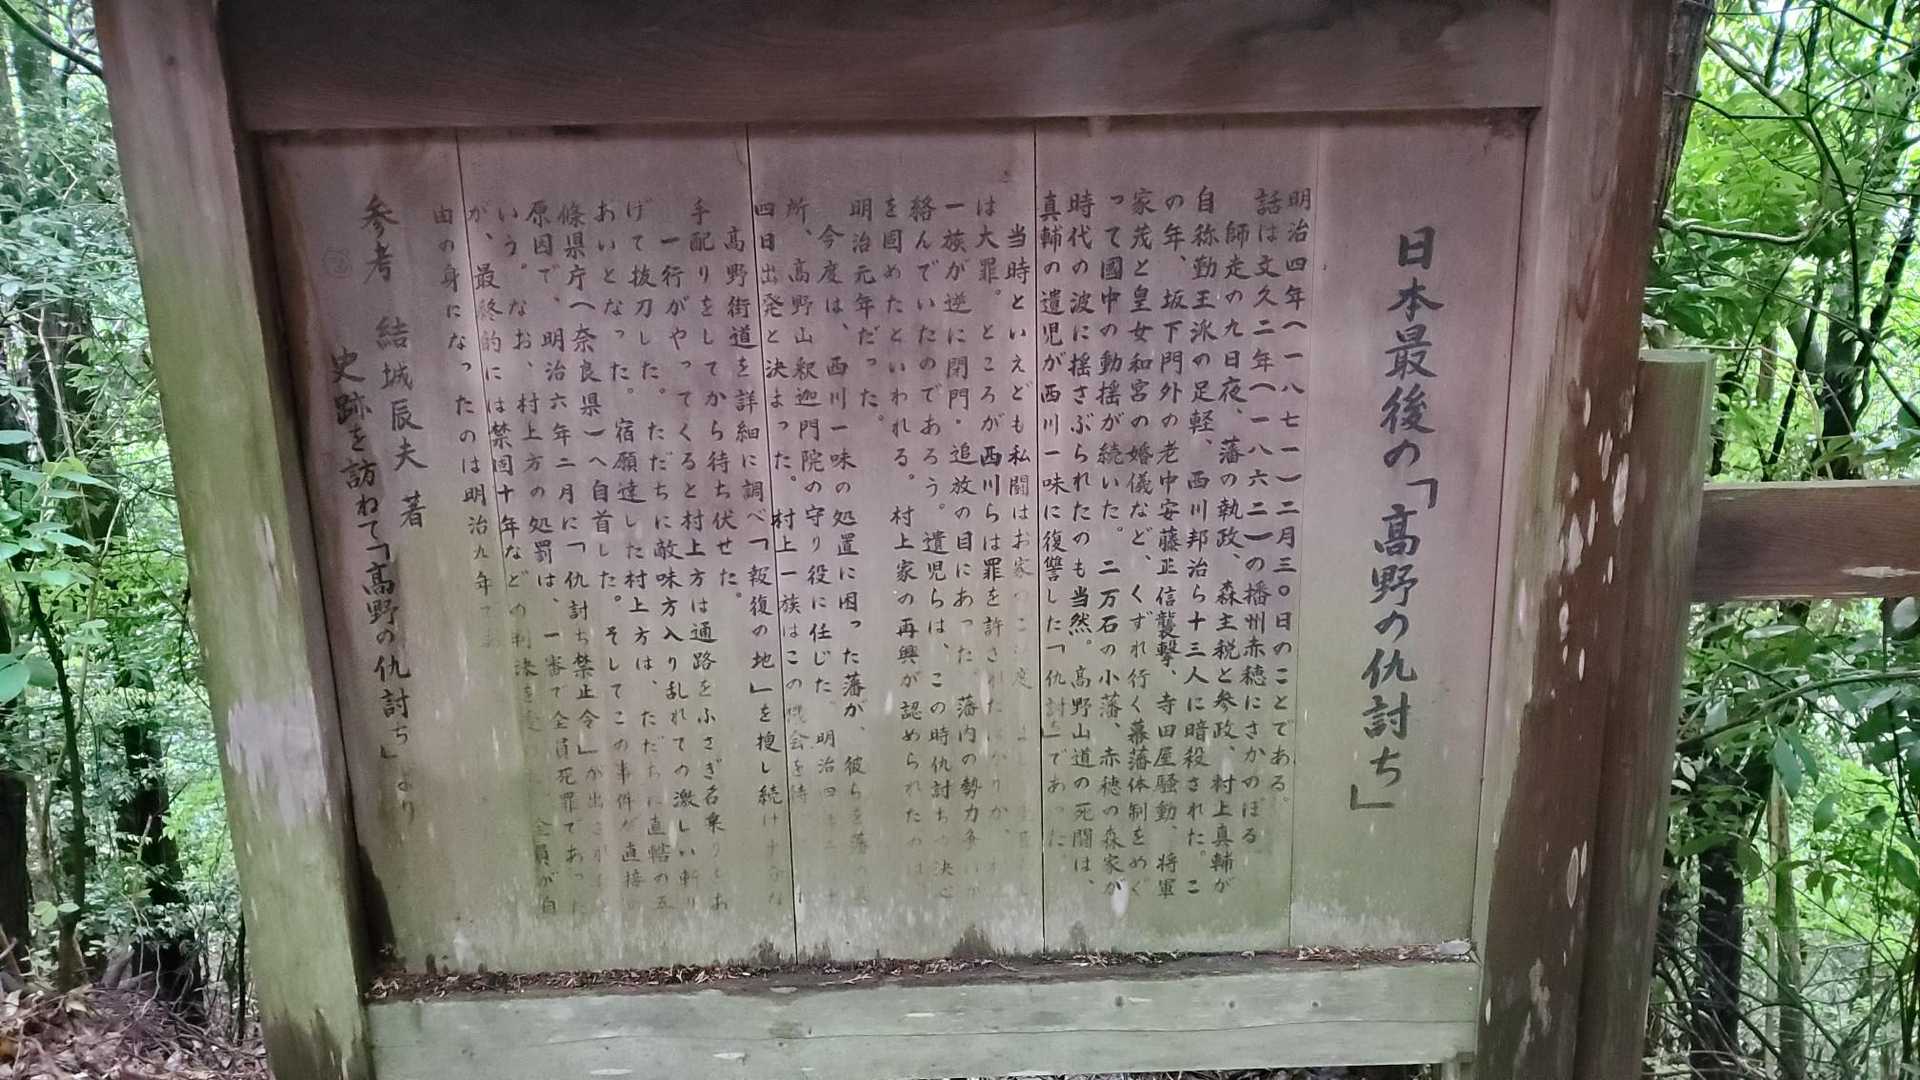 日本最後の「高野の仇討ち」
明治四年(一八七一)二月三〇日のことである。
話は文久二年(一八六二)の播州赤穂にさかのぼる
師走の九日夜、藩の執政、森主税と参政、村上真輔が
自称勤王派の足軽、西川邦治ら十三人に暗殺された。こ
の年、坂下門外の老中安藤正信襲撃、寺田屋騒動、将軍
家茂と皇女和宮の婚儀など、くずれ行く幕藩体制をめぐ
って國中の動揺が続いた。二万石の小藩、赤穂の森家が
時代の波に揺さぶられたのも当然。高野山道の死闘は、
真輔の遺児が西川一味に復讐した「仇討を」であった。
当時といえども私闘はお家の
は大罪。ところが西川らは罪を許された
一族が逆に閉門・追放の目にあった。藩内の勢力争いが
絡んでいたのであろう。遺児らは、この時仇討ちの決心
を固めたといわれる。村上家の再興が認められたのは、
明治元年だった。
今度は、西川一味の処置に困った藩が、彼らを藩の
所、高野山釈迦門院の守り役に任じた。明治四
四日出発と決まった。村上一族はこの機会を待
高野街道を詳細に調べ「報復の地」を捜し続け
手配りをしてから待ち伏せた。
一行がやってくると村上方は通路をふさぎ名乗りをあ
げて抜刀した。ただちに敵味方入り乱れての激しい斬り
あいとなった。宿願達した村上方は、ただちに直轄の五
條県庁(奈良県)へ自首した。そしてこの事件が直接の
原因で、明治六年二月に「仇討ち禁止令」が出
いう。なお、村上方の処罰は、一審で全員死罪であった
が、最終的には禁固十年などの判決を 全員が自
由の身になったのは明治九年であ
参考 結城辰夫 著
史跡を訪ねて「高野の仇討ち」より